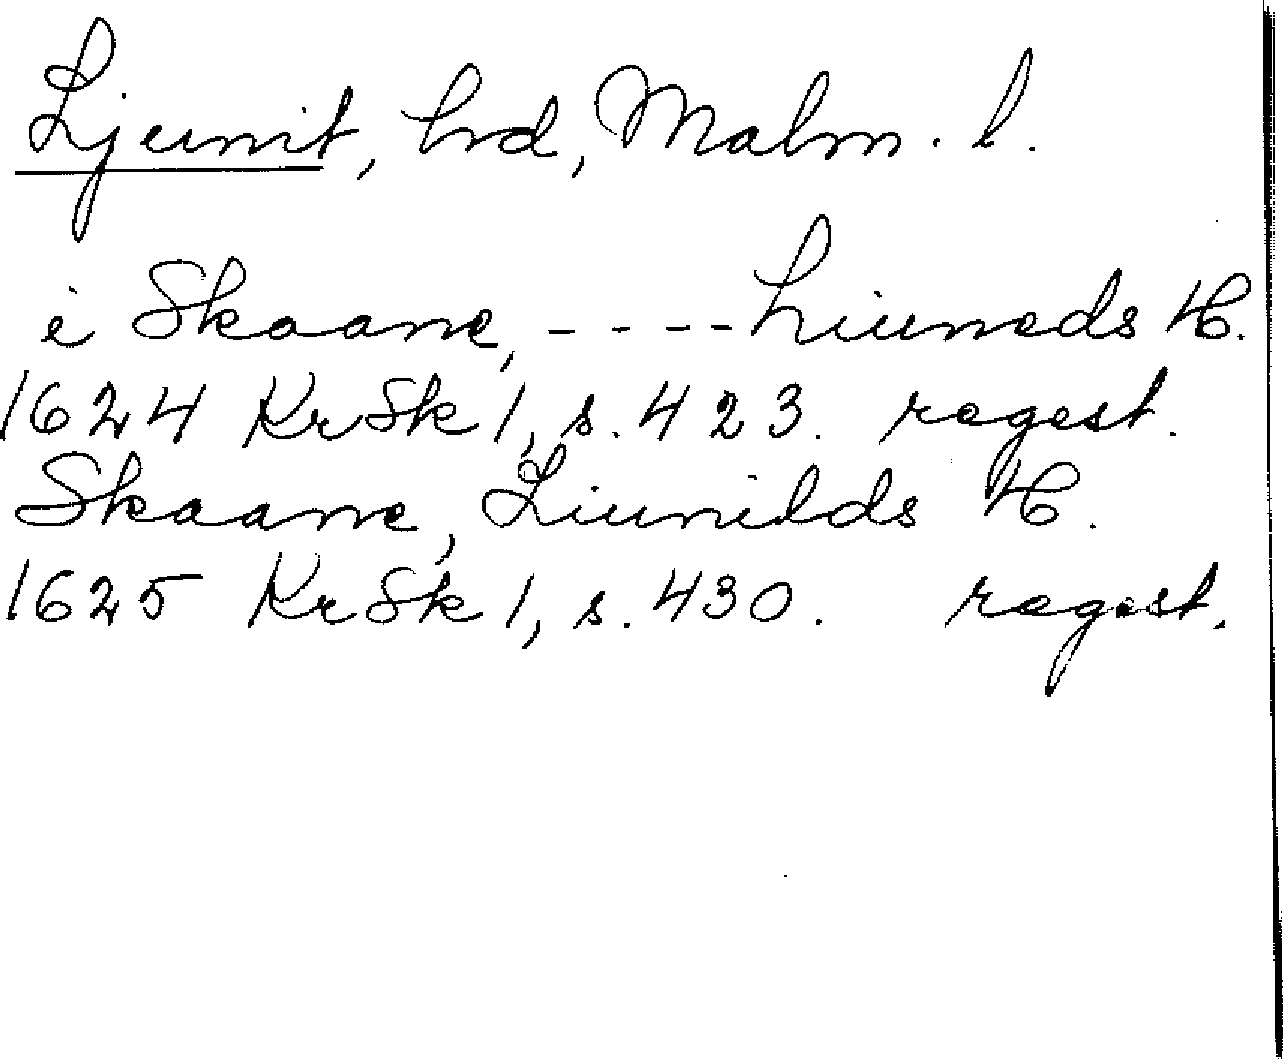 Ljunit, hrd, Malm. l.
i Skaane, ---- Liuneds H.
1624 KrSk 1, s. 423. regest.
Skaane, Liunilds H.
1625 KrSk 1, s. 430. regest.